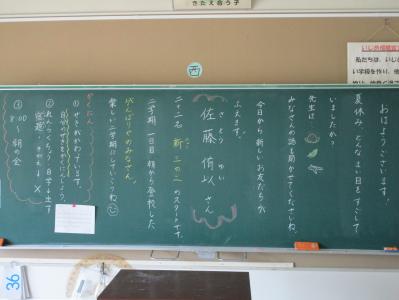 さたえ合う子
西
おはようございます。
夏休み、どんなまい日をすごして
いましたか？
先生は
みなさんの話も聞かせてくださいね。
今日から新しいお友だちが
ふえます。
さとう ゆい
佐藤 侑以 さん
二十二名 新 三の二 のスタートです。
二学期、一日目、朝から登校した
がんばりやのみなさん。
楽しい二学期にしていこうね
かくにん
①せきがかわっています。
自分のせきをかくにんしよう。
②れんらくちょう・日字→出す
宿題、きめよう→×
③8:00〜 朝の会
私たちは、いじ
い学校を作り、他
36